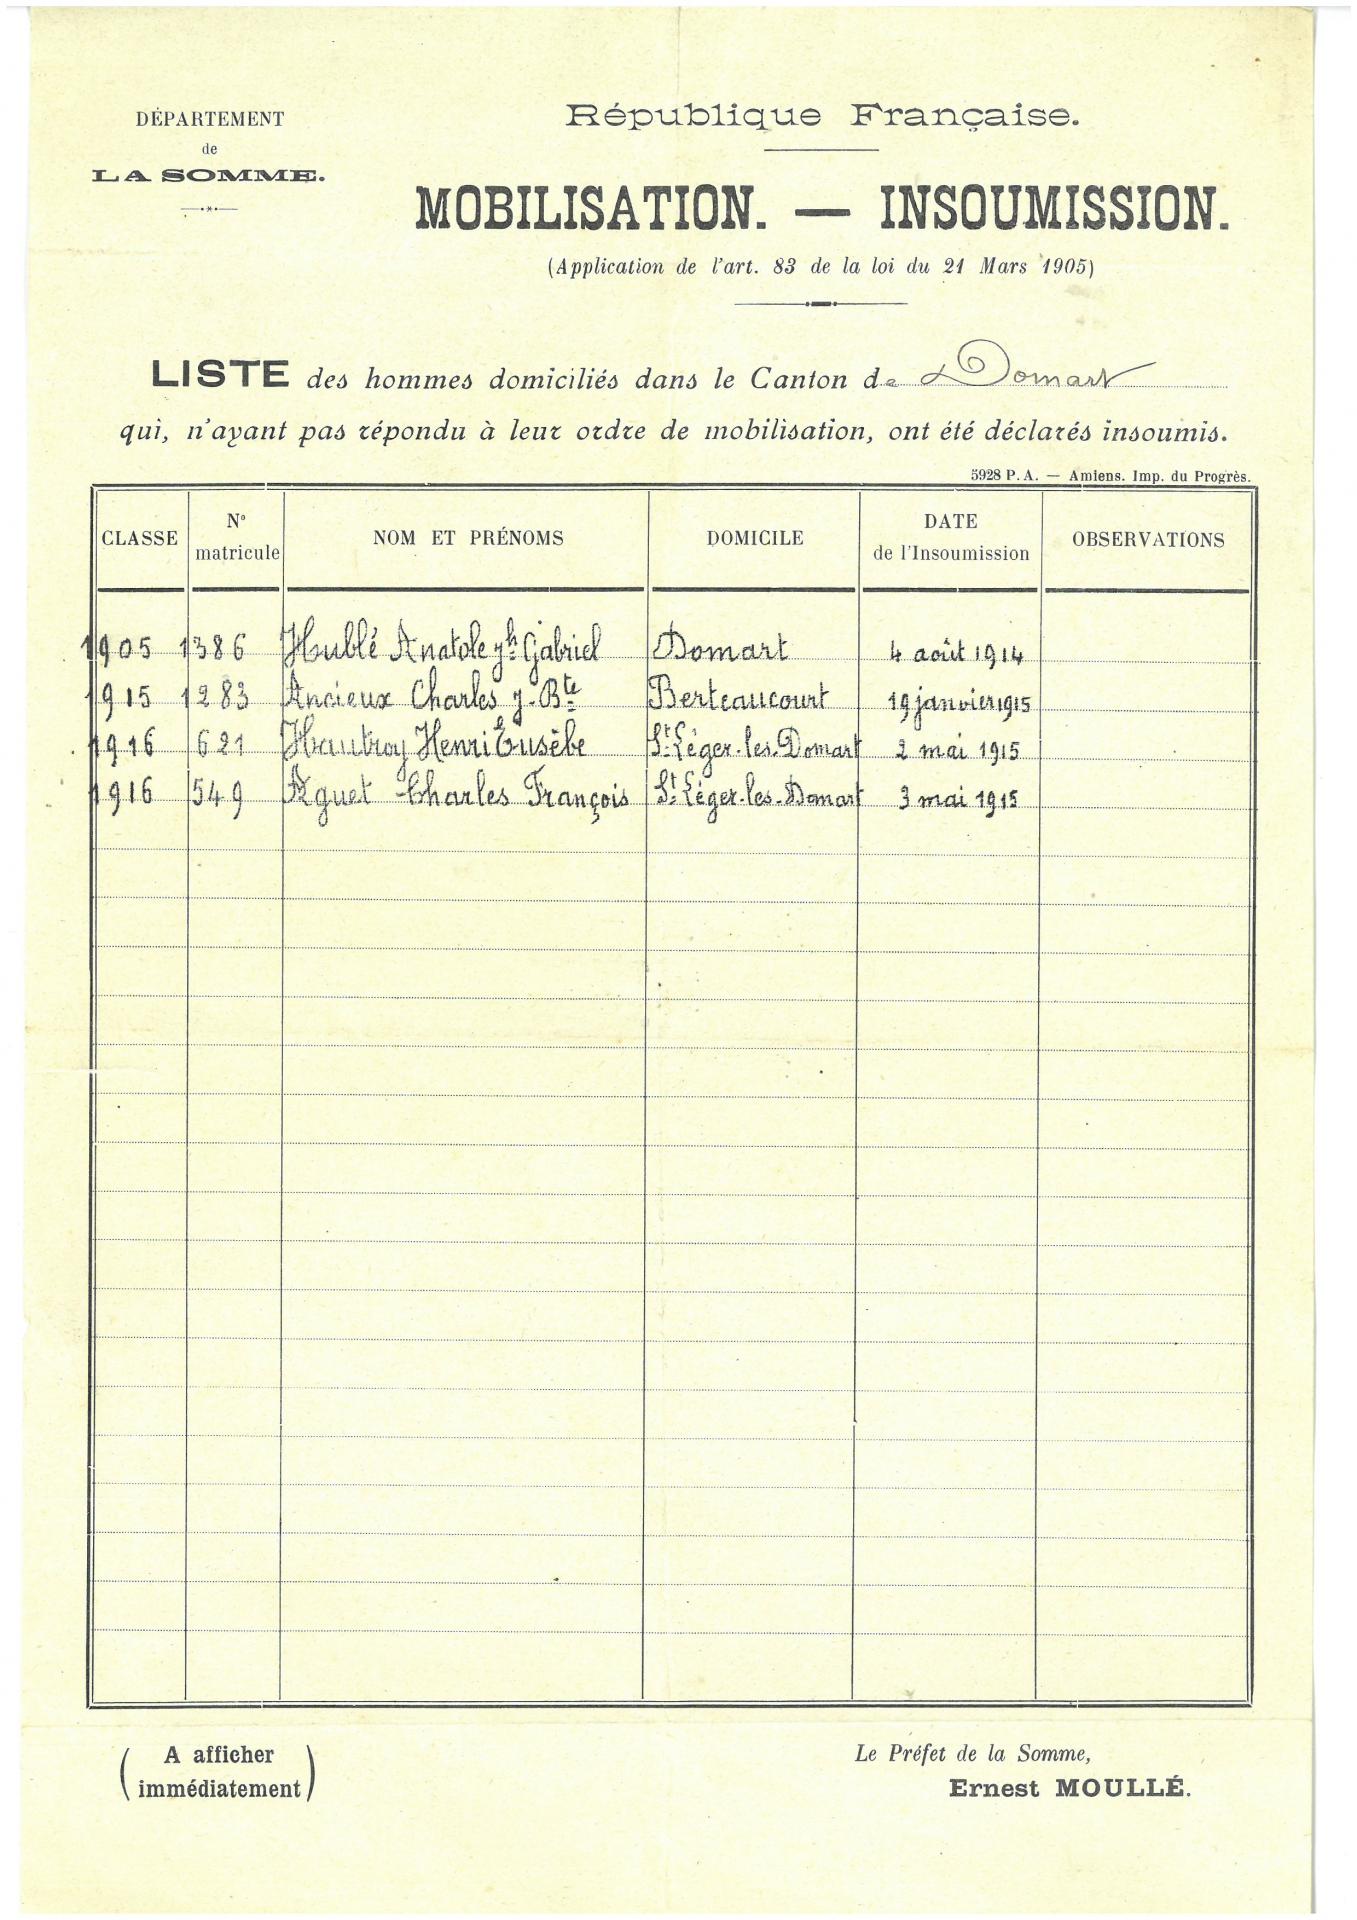 DÉPARTEMENT
de
LA SOMME.
République Française.
MOBILISATION. — INSOUMISSION.
(Application de l'art. 83 de la loi du 21 Mars 1905)
LISTE des hommes domiciliés dans le Canton de Domart
qui, n'ayant pas répondu à leur ordre de mobilisation, ont été déclarés insoumis.
5928 P. A. — Amiens. Imp. du Progrès.
CLASSE N° matricule NOM ET PRÉNOMS DOMICILE DATE de l'Insoumission OBSERVATIONS
1905 1386 Hublé Anatole Jh Gabriel Domart 4 août 1914
1915 1283 Ancieux Charles J-Bte Berteaucourt 19 janvier 1915
1916 621 Hautroy Henri Eusèbe St Léger-les-Domart 2 mai 1915
1916 549 Aguet Charles François St Léger-les-Domart 3 mai 1915
(A afficher
immédiatement)
Le Préfet de la Somme,
Ernest MOULLÉ.